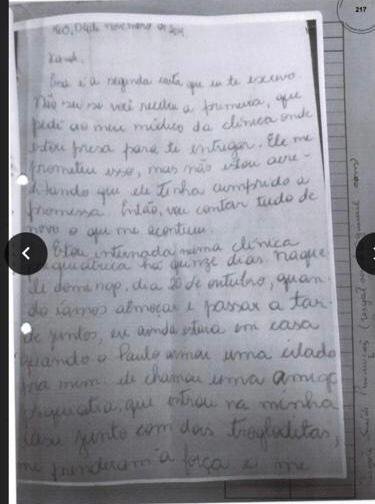 217
Rio, 04 de novembro de 2011
Esta é a segunda carta que eu te escrevo.
Não sei se você recebeu a primeira, que
pedi ao meu médico da clínica onde
estou presa para te entregar. Ele me
prometeu isso, mas não estou acre-
ditando que ele tinha cumprido a
promessa. Então, vou contar tudo de
novo o que me aconteceu.
Estou internada numa clínica
psiquiátrica há quinze dias, naque-
le domingo, dia 20 de outubro, quan-
do íamos almoçar e passar a tar-
de juntos, eu ainda estava em casa
quando o Paulo armou uma cilada
pra mim: ele chamou uma amiga
psiquiatra, que entrou na minha
casa junto com dois trogloditas,
me prenderam à força e me